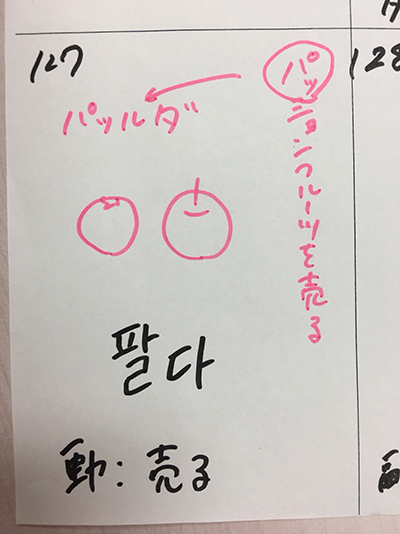 127
128
パッションフルーツを売る
パッルダ
팔다
動：売る
副